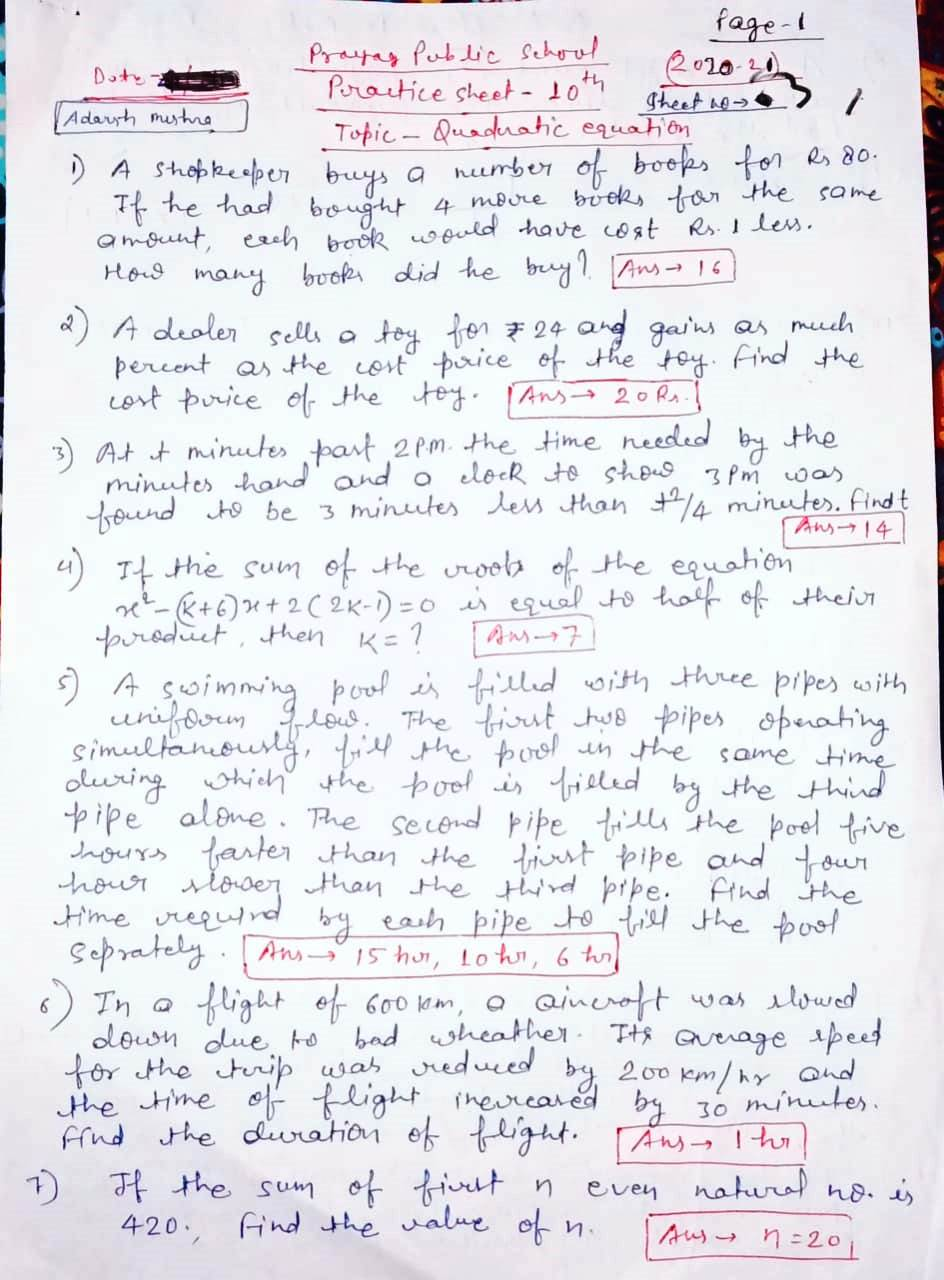 Page-1
Prayag Public School
(2020-21)
Date -
Practice sheet - 10th
Sheet no →
1
Adarsh mishra
Topic - Quadratic equation
1) A shopkeeper buys a number of books for Rs 80.
If he had bought 4 more books for the same
amount, each book would have cost Rs. 1 less.
How many books did he buy? Ans → 16
2) A dealer sells a toy for ₹ 24 and gains as much
percent as the cost price of the toy. find the
cost price of the toy. Ans → 20 Rs.
3) At t minutes past 2 P.M. the time needed by the
minutes hand and a clock to show 3 PM was
found to be 3 minutes less than t²/4 minutes. find t
Ans → 14
4) If the sum of the roots of the equation
x² - (k+6)x + 2(2k-1) = 0 is equal to half of their
product, then K = ? Ans → 7
5) A swimming pool is filled with three pipes with
uniform flow. The first two pipes operating
simultaneously, fill the pool in the same time
during which the pool is filled by the third
pipe alone. The second pipe fills the pool five
hours faster than the first pipe and four
hour slower than the third pipe. find the
time requird by each pipe to fill the pool
seprately. Ans → 15 hr, 10 hr, 6 hr
6) In a flight of 600 km, a aircraft was slowed
down due to bad wheather. Its average speed
for the trip was reduced by 200 km/hr and
the time of flight increased by 30 minutes.
find the duration of flight. Ans → 1 hr
7) If the sum of first n even natural no. is
420, find the value of n. Ans → n = 20